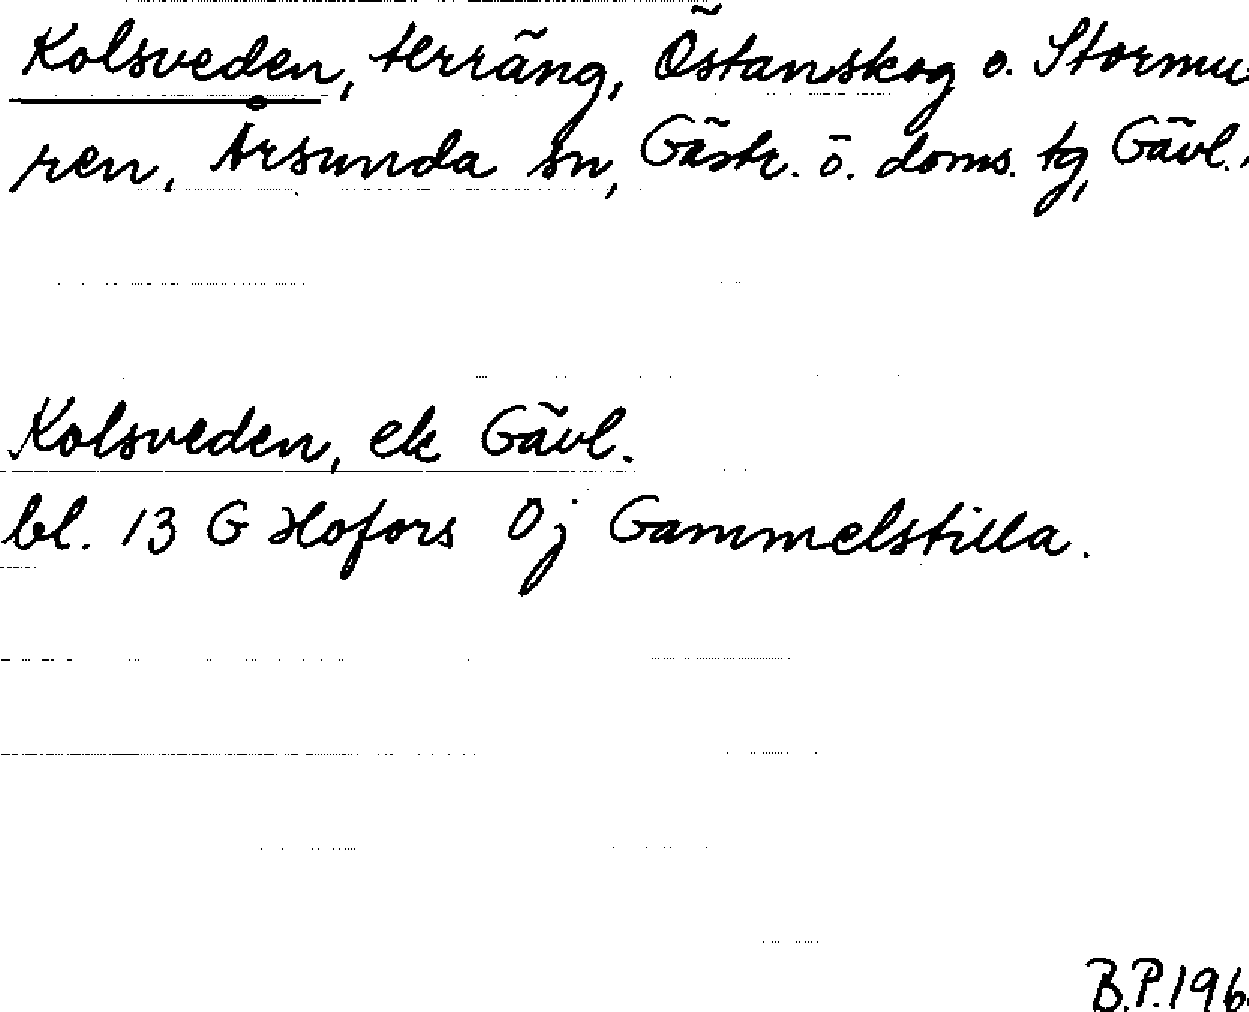 Kolsveden, terräng, Östanskog o. Stormu
ren, Årsunda sn, Gästr. ö. doms. tg, Gävl.
Kolsveden, ek Gävl.
bl. 13 G Hofors 0j Gammelstilla.
B.P. 196